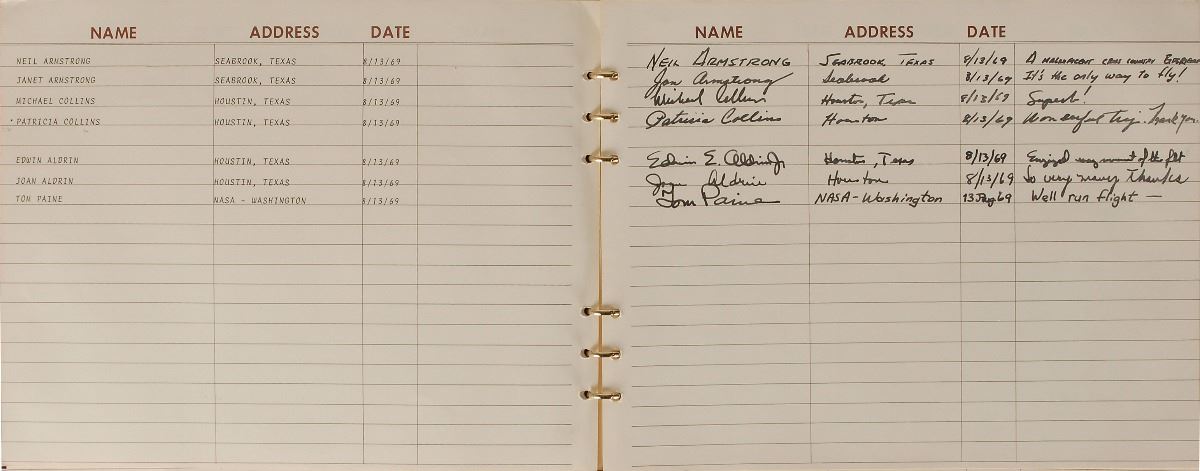 NAME ADDRESS DATE
NEIL ARMSTRONG SEABROOK, TEXAS 8/13/69
JANET ARMSTRONG SEABROOK, TEXAS 8/13/69
MICHAEL COLLINS HOUSTIN, TEXAS 8/13/69
PATRICIA COLLINS HOUSTIN, TEXAS 8/13/69
EDWIN ALDRIN HOUSTIN, TEXAS 8/13/69
JOAN ALDRIN HOUSTIN, TEXAS 8/13/69
TOM PAINE NASA - WASHINGTON 8/13/69
NAME ADDRESS DATE
NEIL ARMSTRONG SEABROOK, TEXAS 8/13/69 A MAGNIFICENT CROSS COUNTRY EXPERIENCE
Jan Armstrong Seabrook 8/13/69 It's the only way to fly!
Michael Collins Houston, Texas 8/13/69 Superb!
Patricia Collins Houston 8/13/69 Wonderful trip. Thank you.
Edwin E. Aldrin Jr Houston, Texas 8/13/69 Enjoyed every moment of the flt
Joan Aldrin Houston 8/13/69 So very many Thanks
Tom Paine NASA - Washington 13 Aug 69 Well run flight —